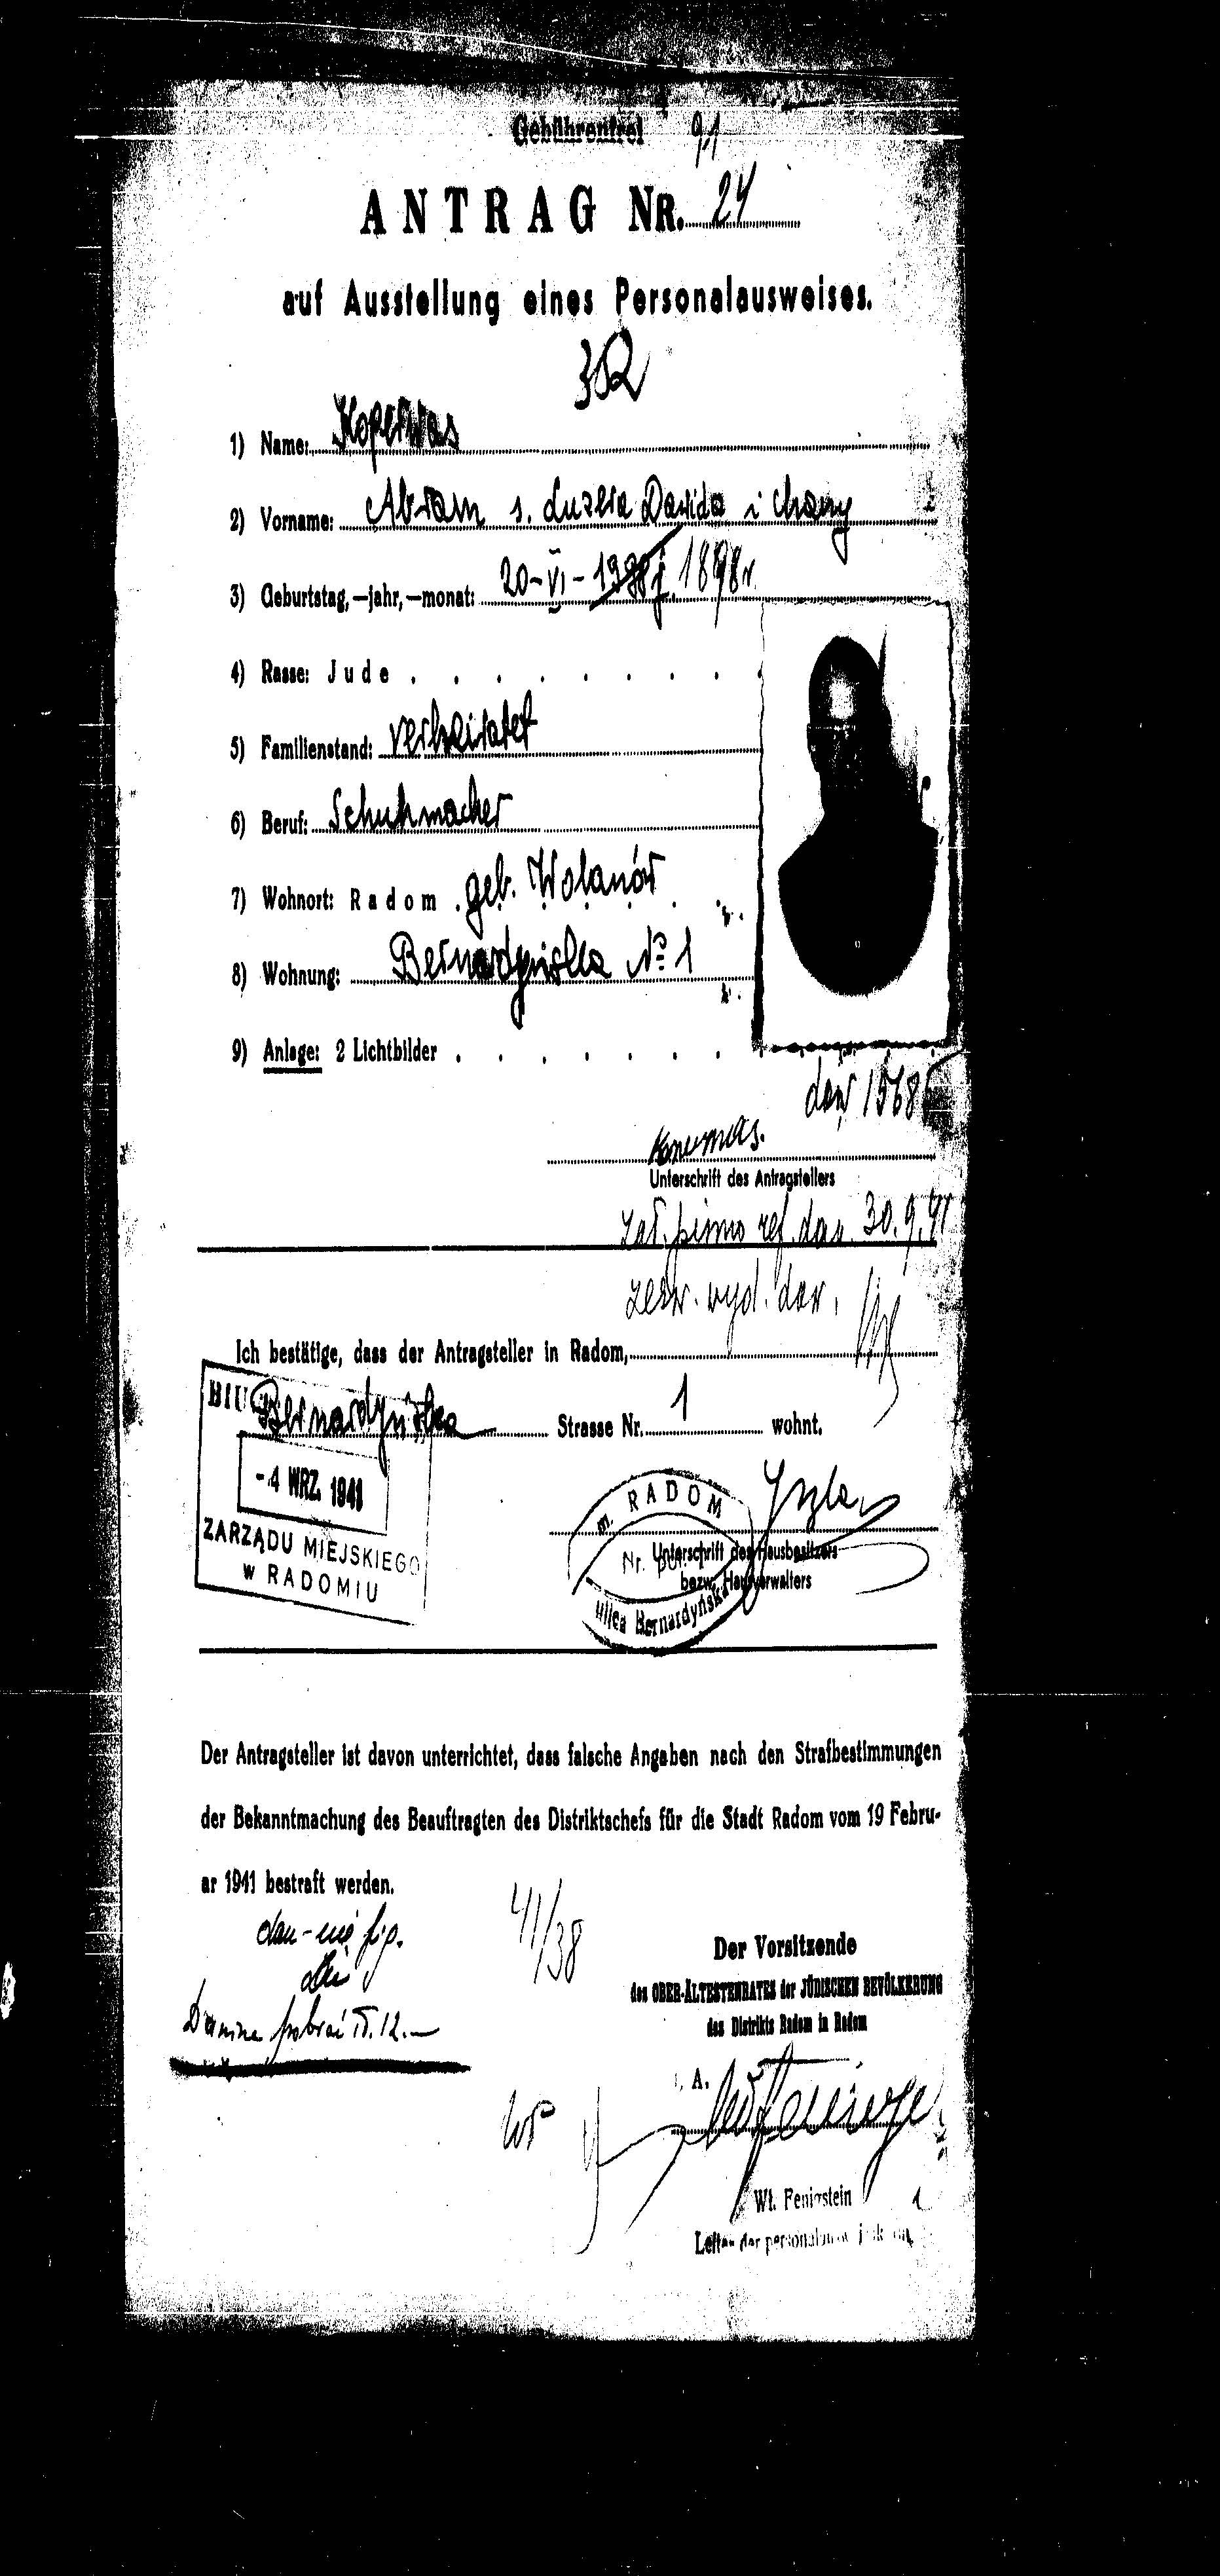 Gebührenfrei 91
ANTRAG NR. 24
auf Ausstellung eines Personalausweises.
1) Name: Koperwas
2) Vorname: Abram s. Luzera Dawida i Chany
3) Geburtstag,—jahr,—monat: 20-VI- 1898r
4) Rasse: Jude
5) Familienstand: verheiratet
6) Beruf: Schuhmacher
7) Wohnort: Radom. geb. Wolanów
8) Wohnung: Bernardyńska № 1
9) Anlage: 2 Lichtbilder
Unterschrift des Antragstellers
30.9.41
wyd.
Ich bestätige, dass der Antragsteller in Radom,
Bernardyńska Strasse Nr. 1 wohnt.
- 4 WRZ. 1941
ZARZĄDU MIEJSKIEGO
w RADOMIU
m. RADOM
Nr.
ulica Bernardyńska
Unterschrift des Hausbesitzers
bezw. Hausverwalters
Der Antragsteller ist davon unterrichtet, dass falsche Angaben nach den Strafbestimmungen
der Bekanntmachung des Beauftragten des Distriktschefs für die Stadt Radom vom 19 Febru-
ar 1941 bestraft werden.
41/38
Der Vorsitzende
des OBER-ÄLTESTENRATES der JÜDISCHEN BEVÖLKERUNG
des Distrikts Radom in Radom
A.
Wł. Fenigstein
Leiter der